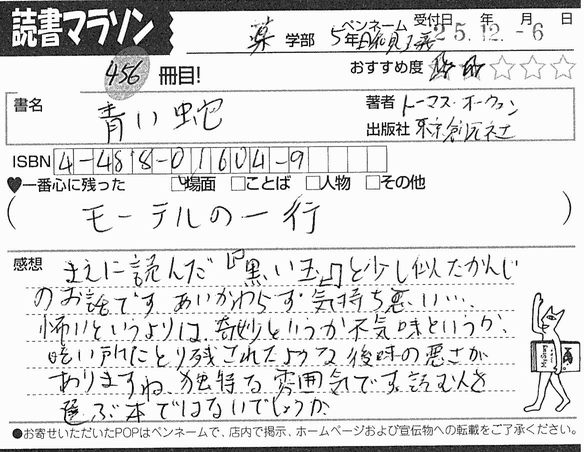 読書マラソン
薬 学部 5年 ペンネーム 受付日 25.12.-6 年 月 日
456 冊目! おすすめ度 ☆☆☆☆☆
書名 青い蛇 著者 トーマス・オーウェン
出版社 東京創元社
ISBN 4-488-01604-9
♥一番心に残った □場面 □ことば □人物 □その他
(モーテルの一行)
感想 まえに読んだ『黒い玉』と少し似たかんじ
のお話です。あいかわらず気持ち悪い….
怖いというよりは奇妙というか不気味というか、
暗い所にとり残されたような後味の悪さが
ありますね。独特な雰囲気です。読む人を
選ぶ本ではないでしょうか
●お寄せいただいたPOPはペンネームで、店内で掲示、ホームページおよび宣伝物への転載をご了承ください。